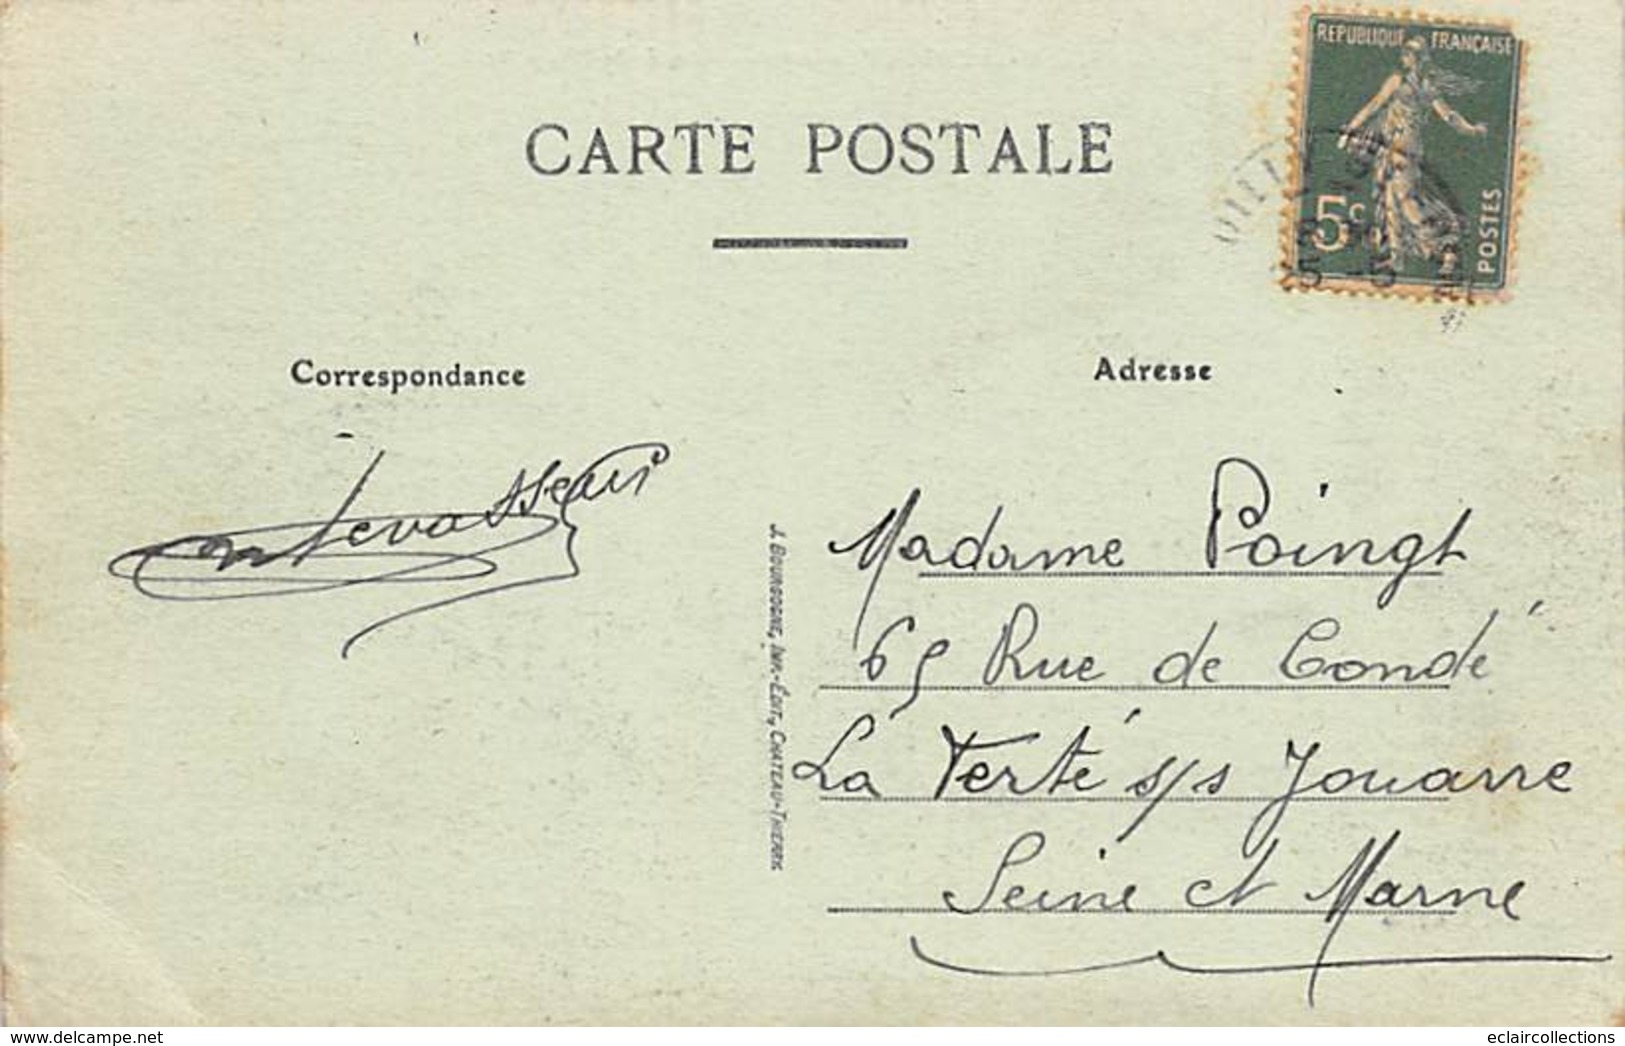 REPUBLIQUE FRANÇAISE
5c
POSTES
CARTE POSTALE
Correspondance
Adresse
Levasseur
J. BOURGOGNE, IMP.-ÉDIT., CHATEAU-THIERRY
Madame Poingt
65 Rue de Condé
La Ferté s/s Jouarre
Seine et Marne
https://www.delcampe.net
eclaircollections